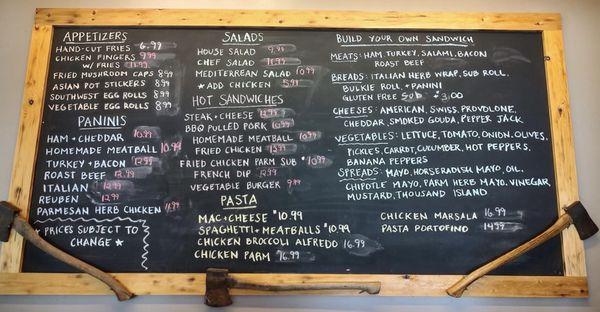 APPETIZERS
HAND-CUT FRIES 6.99
CHICKEN FINGERS 9.99
W/ FRIES 11.99
FRIED MUSHROOM CAPS 8.99
ASIAN POT STICKERS 8.99
SOUTHWEST EGG ROLLS 8.99
VEGETABLE EGG ROLLS 8.99
PANINIS
HAM + CHEDDAR 10.99
HOMEMADE MEATBALL 10.99
TURKEY + BACON 12.99
ROAST BEEF 13.99
ITALIAN 12.99
REUBEN 12.99
PARMESAN HERB CHICKEN 11.99
* PRICES SUBJECT TO
CHANGE *
SALADS
HOUSE SALAD 9.99
CHEF SALAD 11.99
MEDITERREAN SALAD 10.99
* ADD CHICKEN 5.99
HOT SANDWICHES
STEAK + CHEESE 12.99
BBQ PULLED PORK 10.99
HOMEMADE MEATBALL 10.99
FRIED CHICKEN 12.99
FRIED CHICKEN PARM SUB $10.99
FRENCH DIP 12.99
VEGETABLE BURGER 9.99
PASTA
MAC + CHEESE $10.99
SPAGHETTI + MEATBALLS $10.99
CHICKEN BROCCOLI ALFREDO 16.99
CHICKEN PARM 16.99
BUILD YOUR OWN SANDWICH
MEATS: HAM TURKEY, SALAMI, BACON
ROAST BEEF
BREADS: ITALIAN HERB WRAP, SUB ROLL,
BULKIE ROLL, + PANINI
GLUTEN FREE SUB + 3.00
CHEESES: AMERICAN, SWISS, PROVOLONE,
CHEDDAR, SMOKED GOUDA, PEPPER JACK
VEGETABLES: LETTUCE, TOMATO, ONION, OLIVES,
PICKLES, CARROT, CUCUMBER, HOT PEPPERS,
BANANA PEPPERS
SPREADS: MAYO, HORSERADISH MAYO, OIL,
CHIPOTLE MAYO, PARM HERB MAYO, VINEGAR
MUSTARD, THOUSAND ISLAND
CHICKEN MARSALA 16.99
PASTA PORTOFINO 14.99